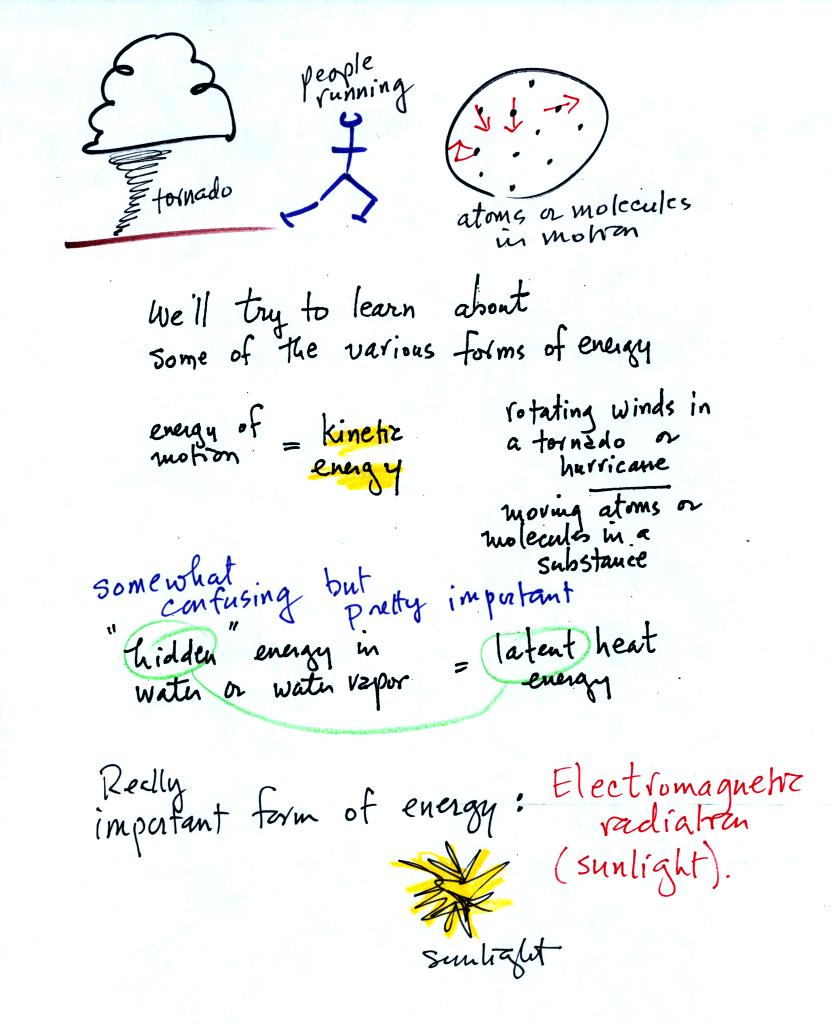 people
running
tornado
atoms or molecules
in motion
We'll try to learn about
some of the various forms of energy
energy of
motion
=
kinetic
energy
rotating winds in
a tornado or
hurricane
moving atoms or
molecules in a
substance
somewhat
confusing but
pretty important
"hidden" energy in
water or water vapor
=
latent heat
energy
Really
important form of energy :
Electromagnetic
radiation
(sunlight).
sunlight